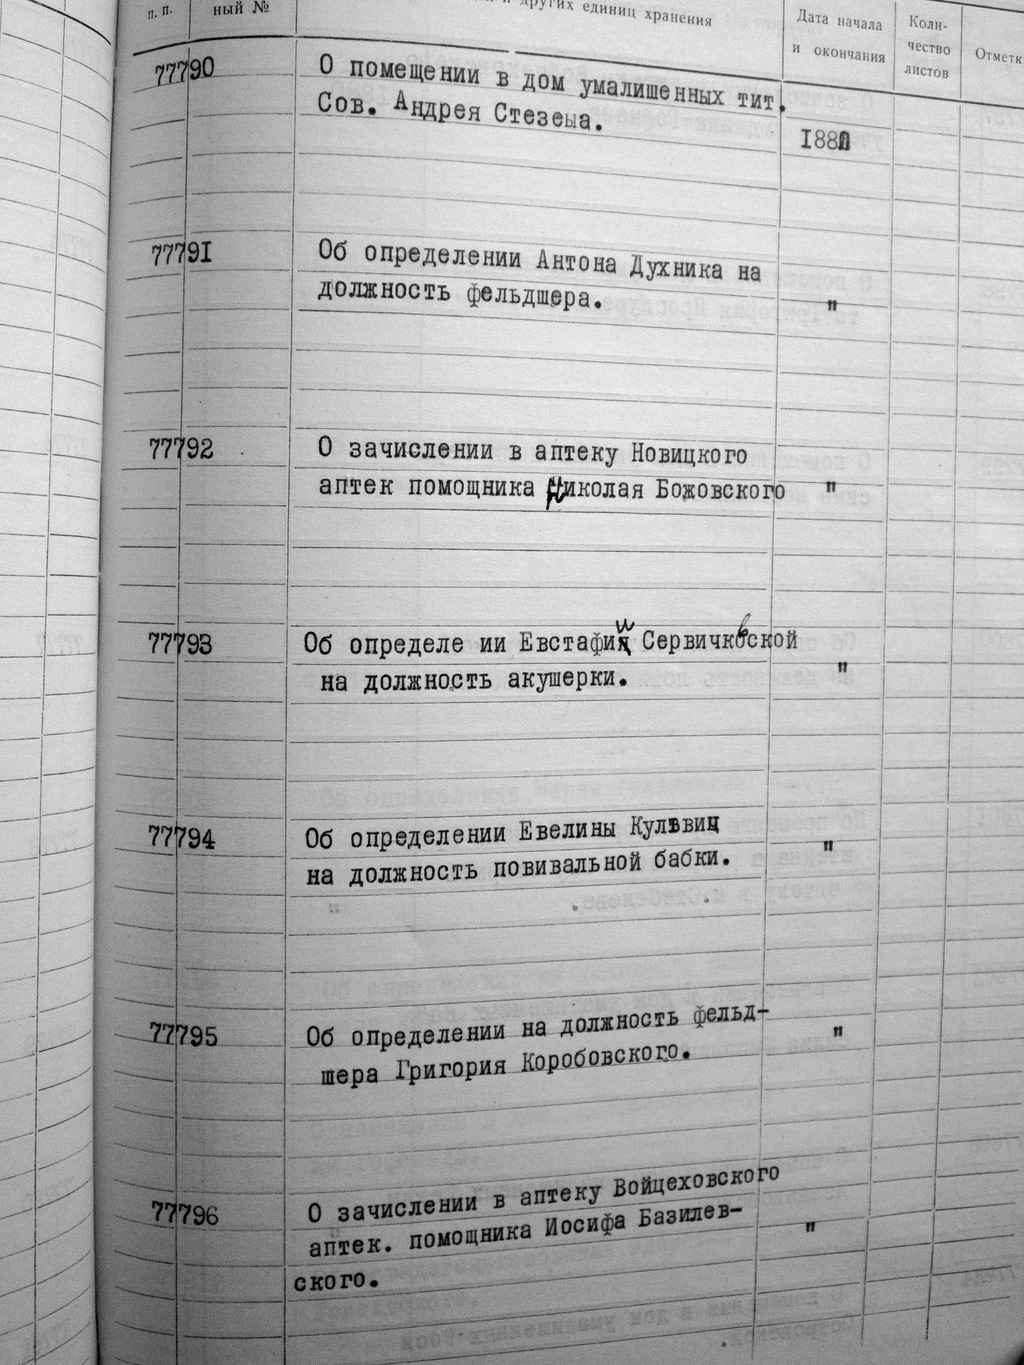 п. п.
ный №
других единиц хранения
Дата начала
и окончания
Коли-
чество
листов
Отметк
77790
О помещении в дом умалишенных тит.
Сов. Андрея Стезеыа.
1881
77791
Об определении Антона Духника на
должность фельдшера.
"
77792
О зачислении в аптеку Новицкого
аптек помощника Николая Божовского
"
77793
Об определе ии Евстафии Сервичквской
на должность акушерки.
"
77794
Об определении Евелины Кулввиц
на должность повивальной бабки.
"
77795
Об определении на должность фельд-
шера Григория Коробовского.
"
77796
О зачислении в аптеку Войцеховского
аптек. помощника Иосифа Базилев-
ского.
"